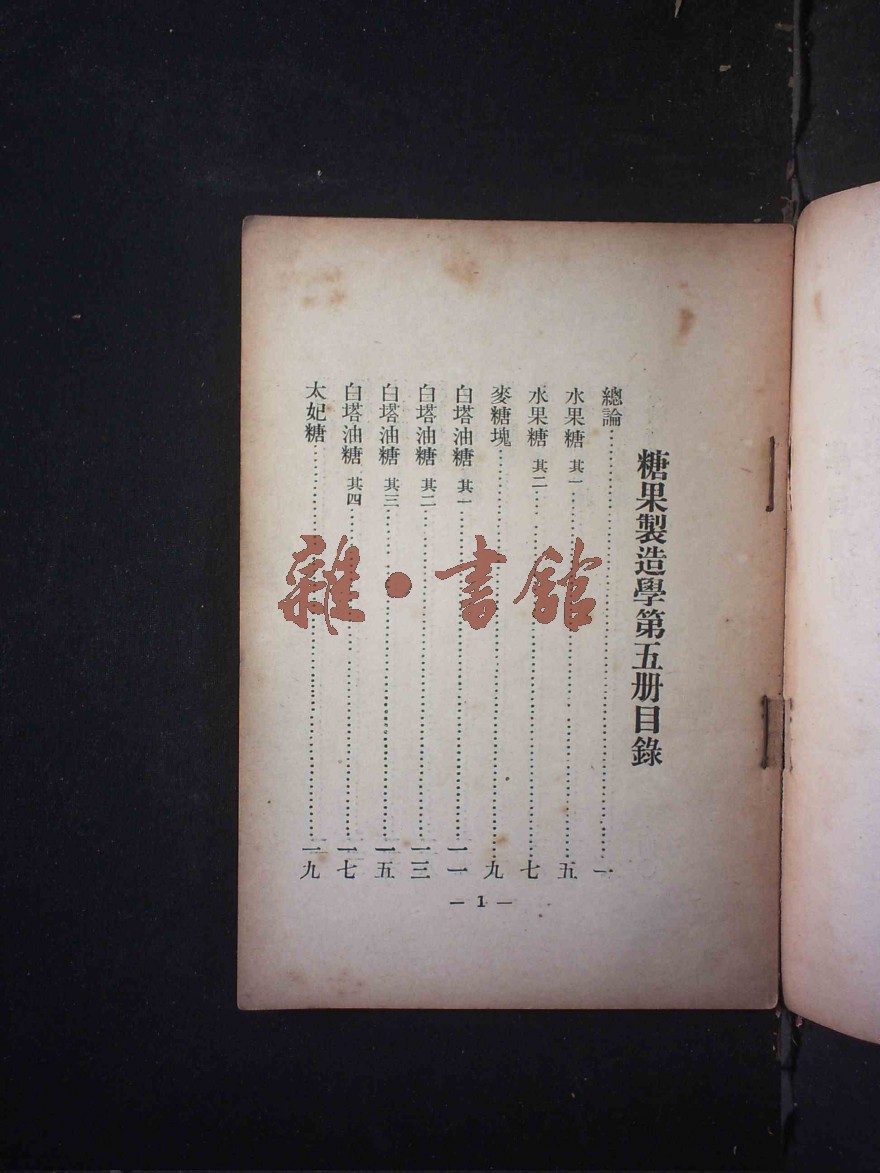 糖果製造學第五册目錄
總論……一
水果糖 其一……五
水果糖 其二……七
麥糖塊……九
白塔油糖 其一……一一
白塔油糖 其二……一三
白塔油糖 其三……一五
白塔油糖 其四……一七
太妃糖……一九
— 1 —
雜·書館